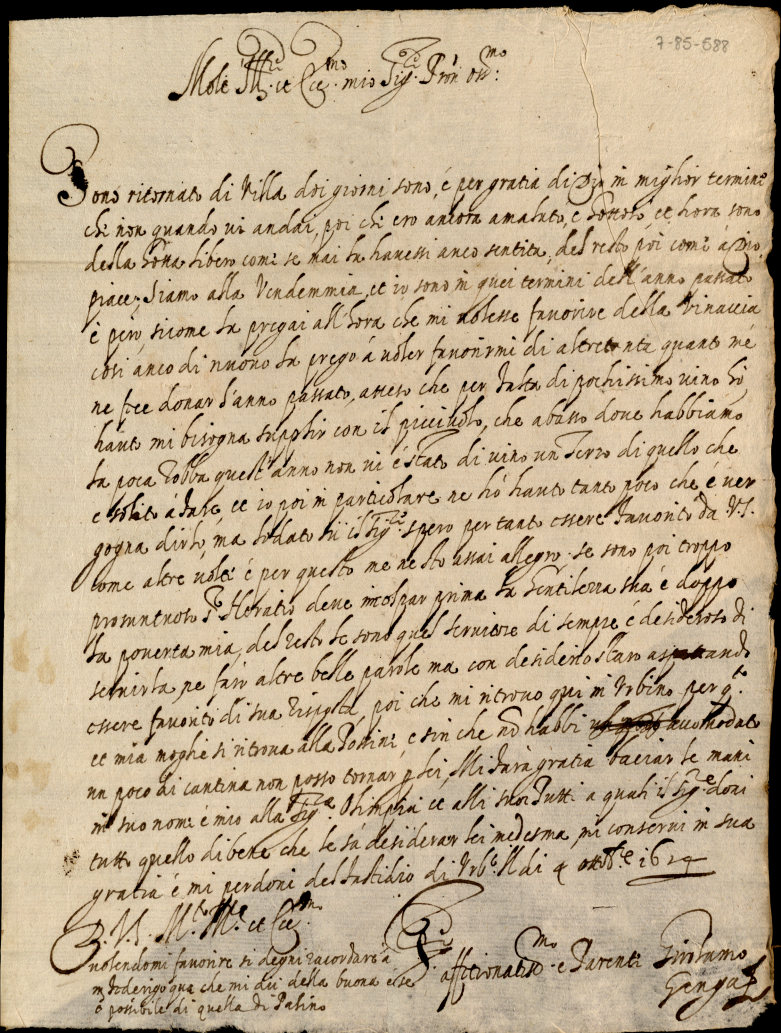 7-85-588
Molto Ill.re et Ecc.mo mio Sig. Pron oss.mo
Sono ritornato di Villa doi giorni sono, é per gratia di Dio in miglior termine
che non quando vi andai, poi che ero ancora amalato, e et hora sono
della libero come se mai la havessi anco sentita, del resto poi come á Dio
piace, Siamo alla Vendemmia, et io sono in quei termini dell'anno passato
è però sicome la pregai all'hora che mi volesse favorire della Vinaccia
cosi anco di nuovo la prego á voler favorirmi di altretanta quant me
ne fece donar l'anno passato, atteso che per di pochissimo vino hò
hauto mi bisogna supplir con il picciuolo, che abasso dove habbiamo
la poca robba quest'anno non vi é stato di vino un Terzo di quello che
e solito á dare, et io poi in particolare ne hó hauto tanto poco che é ver
gogna dirlo, ma lodato sii il Sig.re spero pertanto essere favorito da V.S.
come altre volte é per questo me ne sto assai allegro. se sono poi troppo
prosuntuoso Horatio deve incolpar prima la gentilezza sua é doppo
la povertá mia, del resto le sono quel servitore di sempre é desideroso di
servirla, ne faró altre belle parole ma con desiderio staró aspettando
essere favorito di sua risposta, poi che mi ritrovo qui in Urbino per q.to
et mia moglie si ritrova alla, e sin che nó habbi accomodato
un poco di cantina non posso tornar p lei, Mi fará gratia baciar le mani
in suo nome é mio alla Sig.ra Olimpia et alli suoi Putti a quali il Sig.re doni
tutto quello di bene che le sá desiderar lei medesma, mi conservi in sua
gratia é mi perdoni del fastidio di Urb.o il di 4 ottob.e 1624
D. V. S. M.to Ill.re et Ecc.mo
volendomi favorire si degni racordare á
m. Federigo qua che mi dii della buona e se
è possibile di quella di Pasino
affetionatiss.mo e Parente Girolamo
Genga